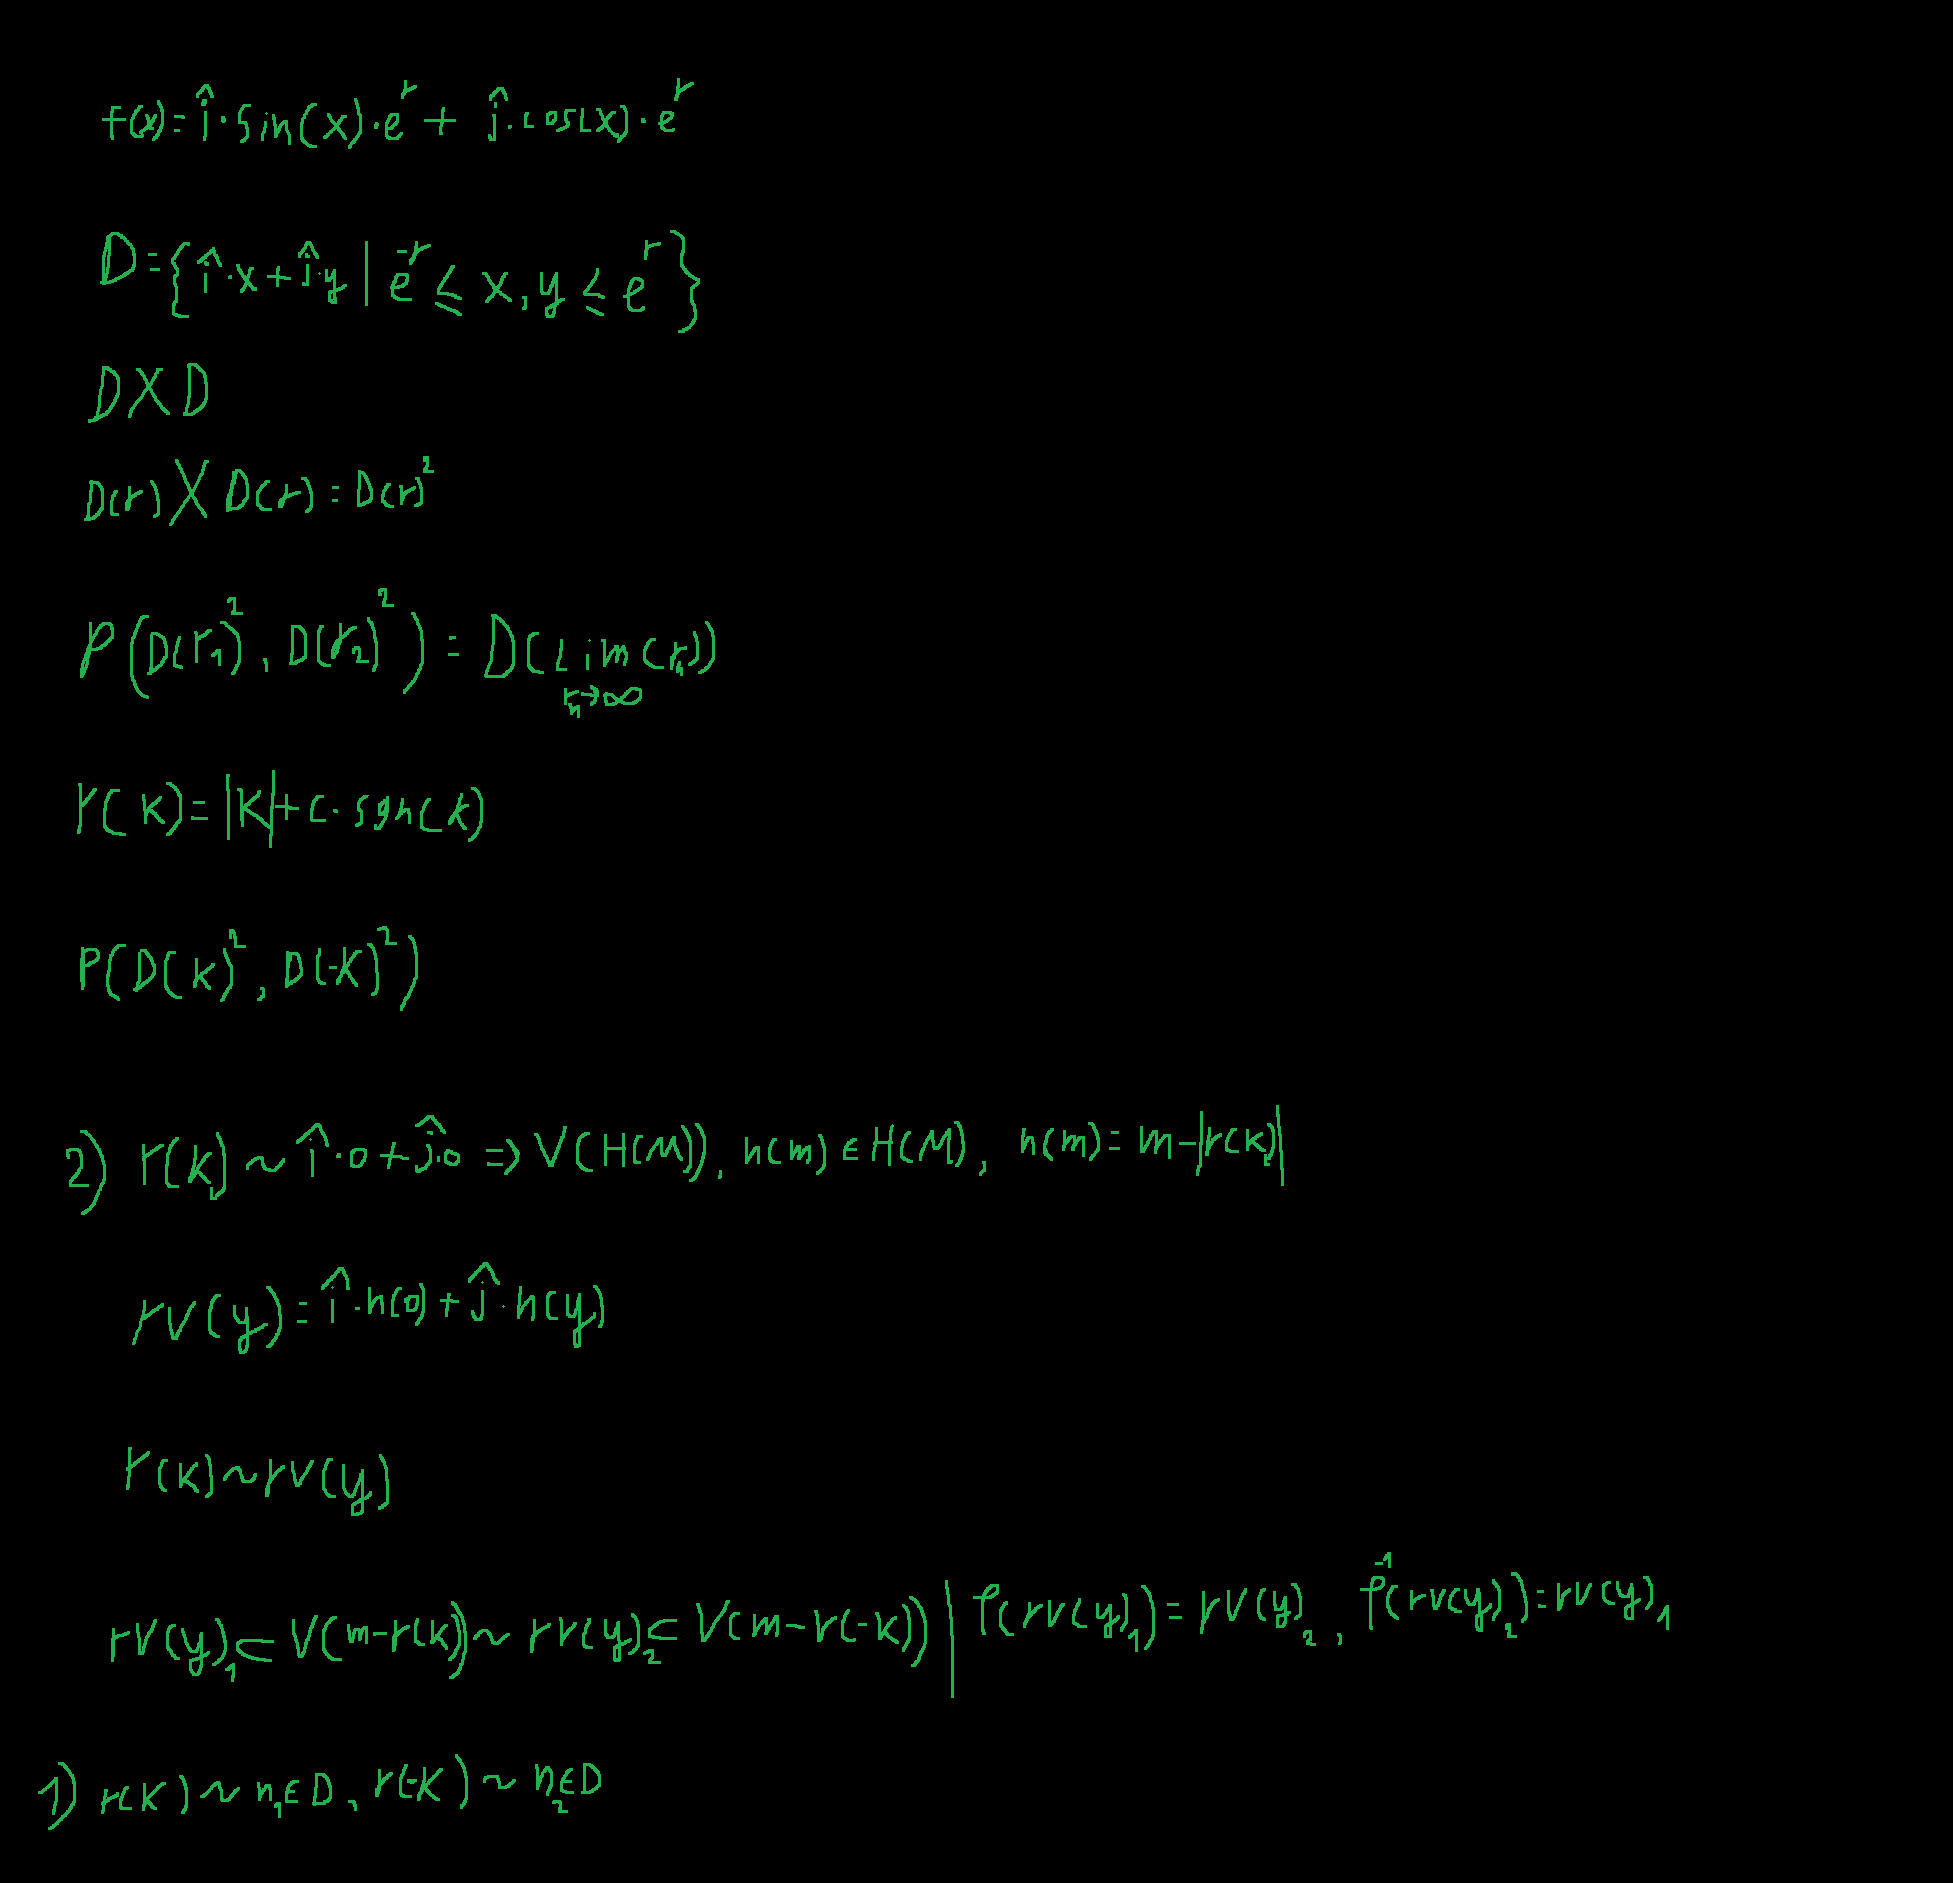 f(x)=î·sin(x)·e^r + ĵ·cos(x)·e^r
D={î·x+ĵ·y | e^-r ≤ x,y ≤ e^r}
D X D
D(r) X D(r) = D(r)²
P(D(r₁)², D(r₂)²) = D(Lim(rₙ)) rₙ→∞
r(k)=|k|+c·sgn(k)
P(D(k)², D(-k)²)
2) r(k₁) ~ î·0+ĵ·0 => V(H(M)), h(m) ∈ H(M), h(m)=m-|r(k₁)|
rV(y)=î·h(0)+ĵ·h(y)
r(k)~rV(y)
rV(y)₁ ⊂ V(m-r(k)) ~ rV(y)₂ ⊂ V(m-r(-k)) | P(rV(y)₁)=rV(y)₂, P⁻¹(rV(y)₂)=rV(y)₁
1) r(k) ~ n₁∈D, r(-k) ~ n₂∈D